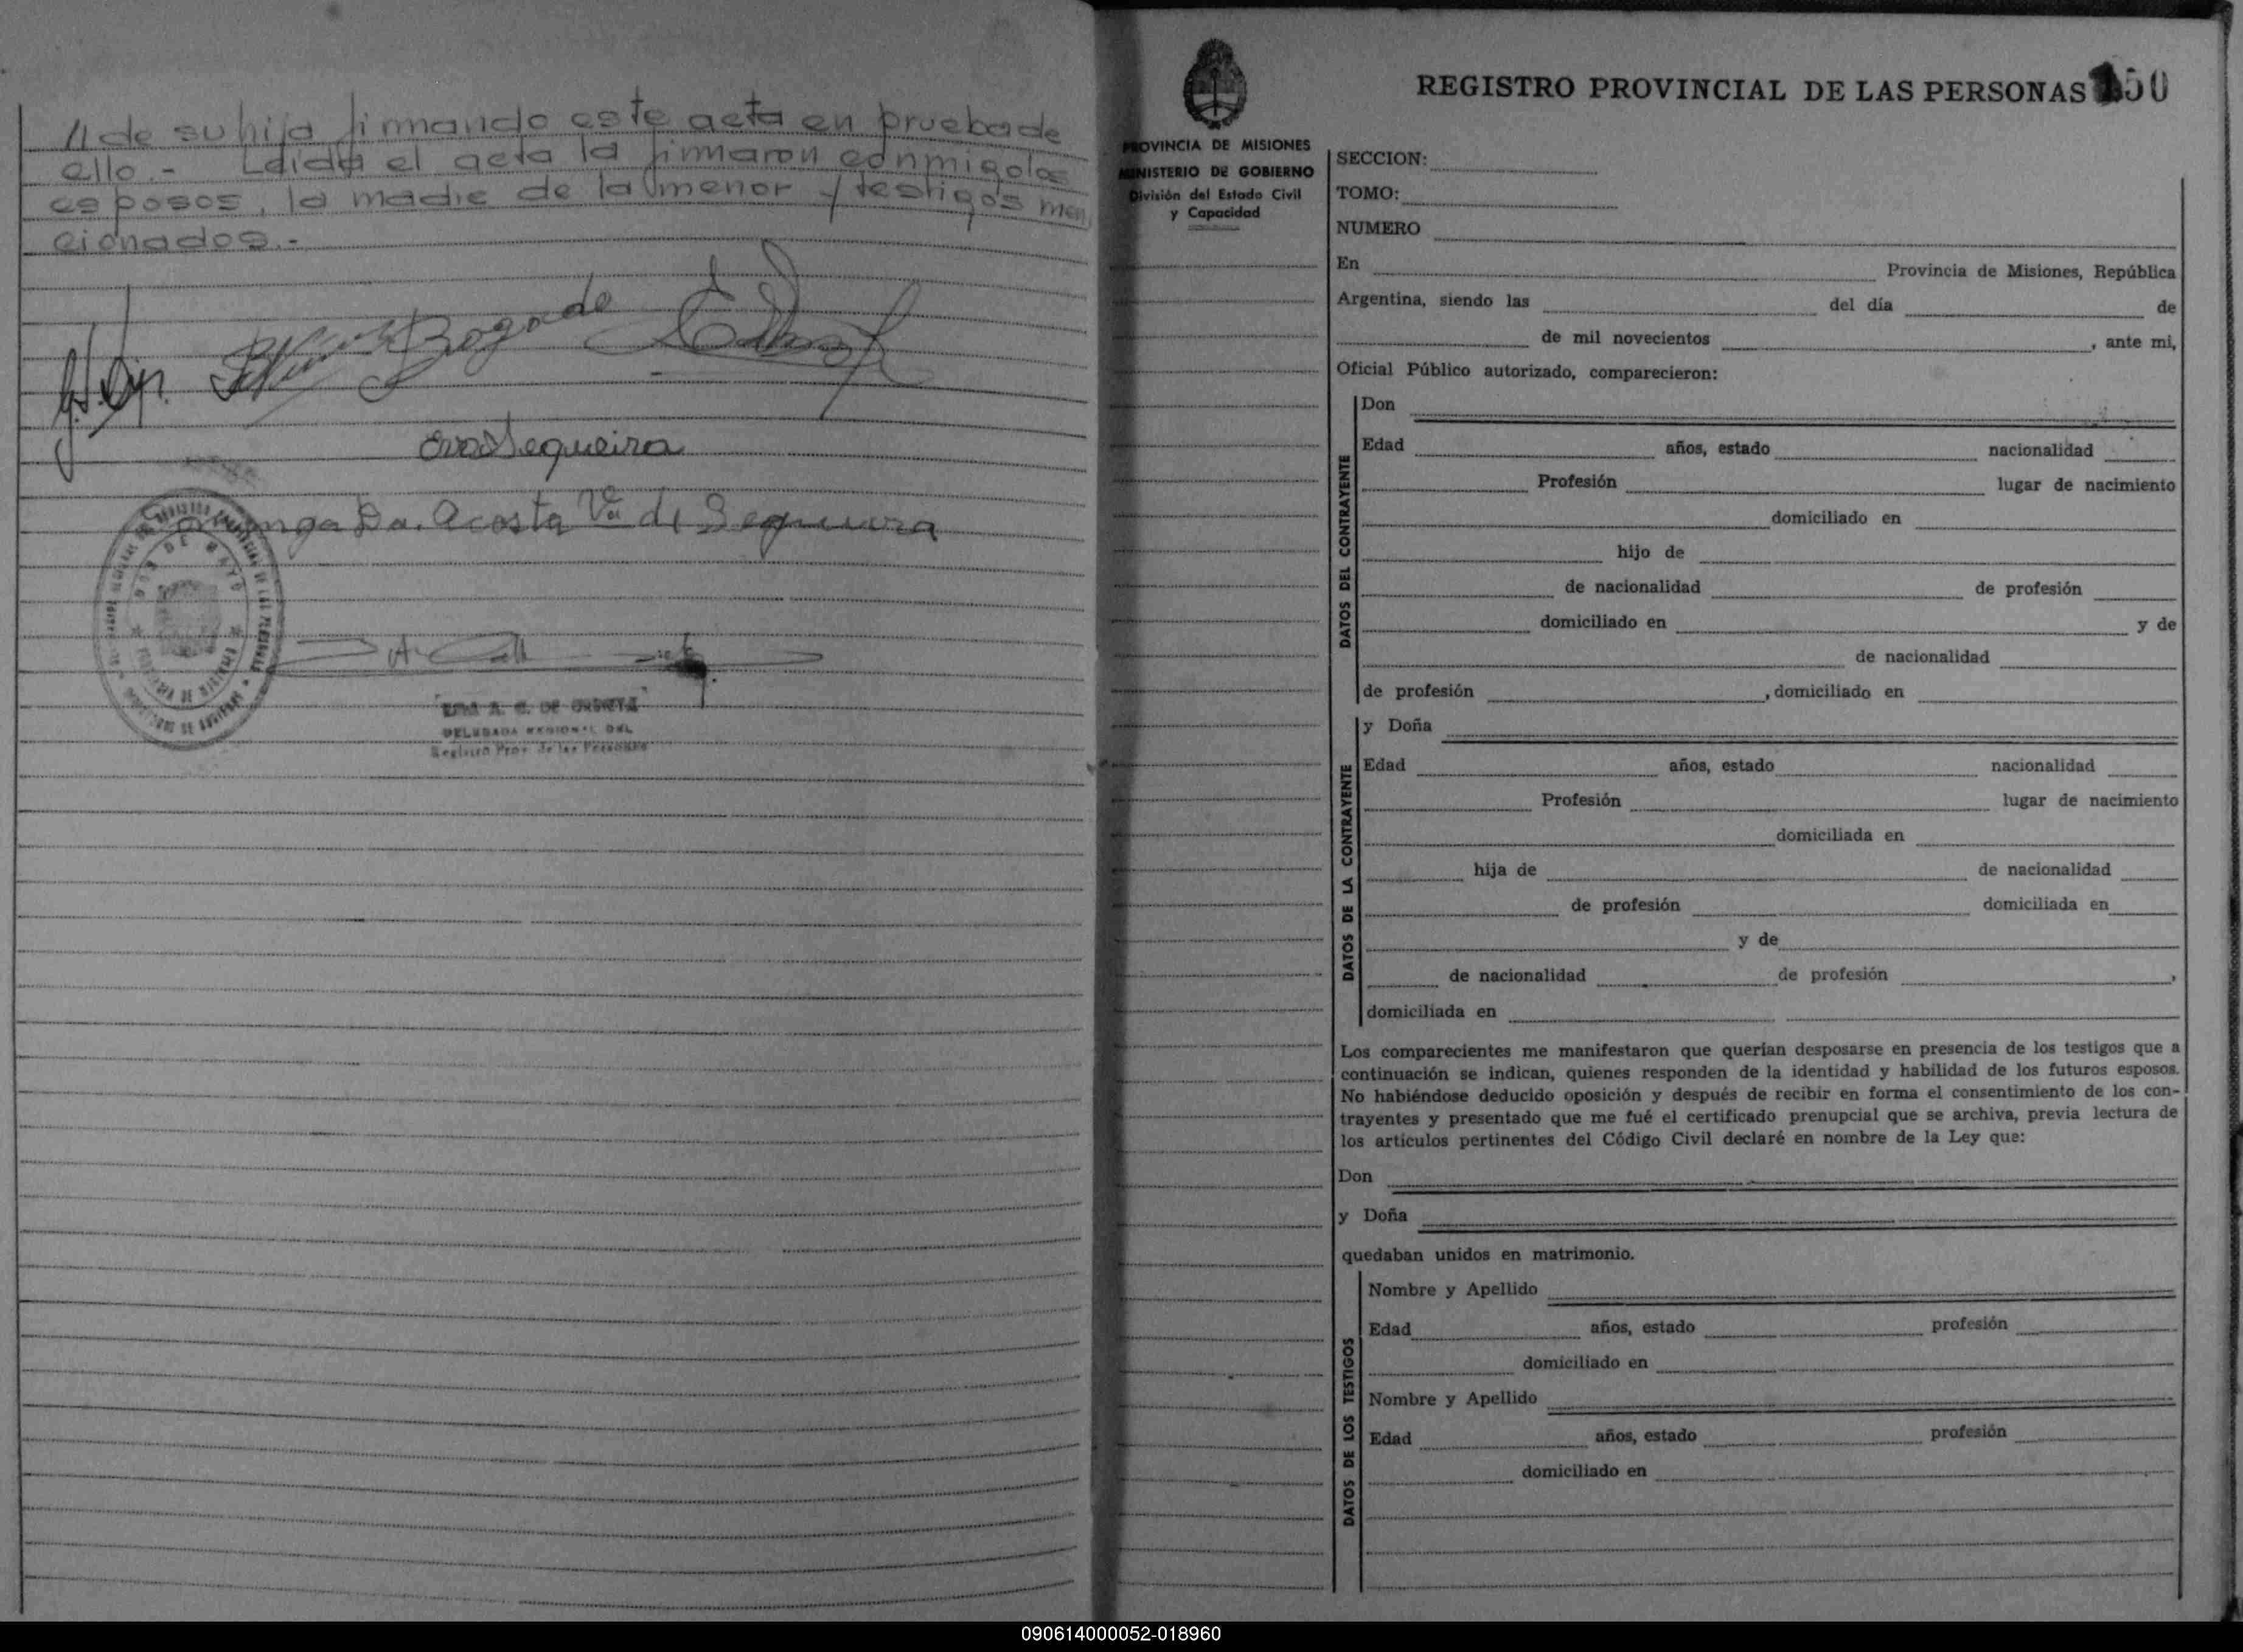 // de su hija firmando este acta en prueba de
ello.- Leida el acta la firmaron conmigo los
esposos, la madre de la menor y testigos men
cionados.-
Bogado
Eva Sequeira
Da. Acosta Vda de Sequeira
DOS DE MAYO
DELEGADA REGIONAL DEL
Registro Prov. de las Personas
REGISTRO PROVINCIAL DE LAS PERSONAS 150
PROVINCIA DE MISIONES
MINISTERIO DE GOBIERNO
División del Estado Civil
y Capacidad
SECCION:
TOMO:
NUMERO
En Provincia de Misiones, República
Argentina, siendo las del día de
de mil novecientos , ante mi,
Oficial Público autorizado, comparecieron:
DATOS DEL CONTRAYENTE
Don
Edad años, estado nacionalidad
Profesión lugar de nacimiento
domiciliado en
hijo de
de nacionalidad de profesión
domiciliado en y de
de nacionalidad
de profesión , domiciliado en
DATOS DE LA CONTRAYENTE
y Doña
Edad años, estado nacionalidad
Profesión lugar de nacimiento
domiciliada en
hija de de nacionalidad
de profesión domiciliada en
y de
de nacionalidad de profesión ,
domiciliada en
Los comparecientes me manifestaron que querían desposarse en presencia de los testigos que a
continuación se indican, quienes responden de la identidad y habilidad de los futuros esposos.
No habiéndose deducido oposición y después de recibir en forma el consentimiento de los con-
trayentes y presentado que me fué el certificado prenupcial que se archiva, previa lectura de
los artículos pertinentes del Código Civil declaré en nombre de la Ley que:
Don
y Doña
quedaban unidos en matrimonio.
DATOS DE LOS TESTIGOS
Nombre y Apellido
Edad años, estado profesión
domiciliado en
Nombre y Apellido
Edad años, estado profesión
domiciliado en
090614000052-018960